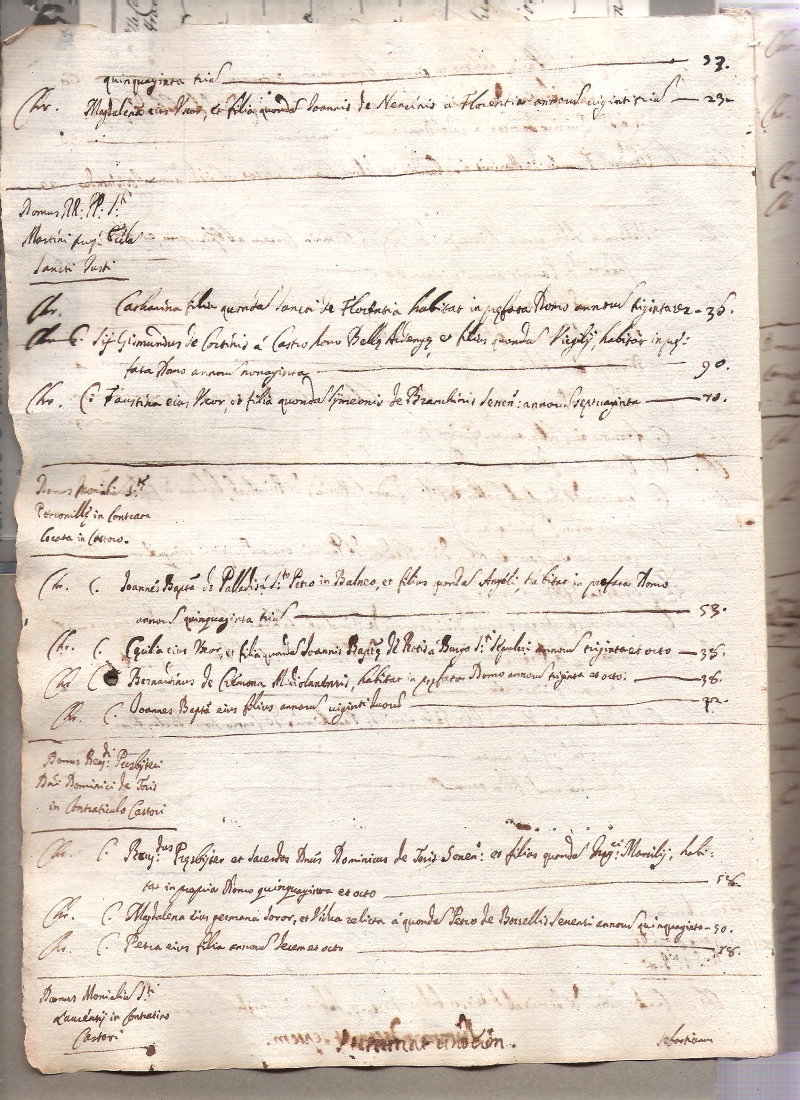 quinquaginta triu — 53.
Chr. Magdalena eius Uxor, et filia quondã Joannis de Nencinis à Florentia annoru viginti triu — 23.
Domus RR: PP: S.ti
Martini
Sancti Justi
Chr. Catharina filia quondã Sancti de Florentia habitat in prefata Domo annoru triginta sex — 36.
Chr. C. et filius quondã Virgilij, habitat in pre:
fata Domo annoru nonaginta — 90.
Chr. C: Faustina eius Uxor, et filia quondã Simeonis de Branchinis Senen: annoru septuaginta — 70.
Domus Monialiũ S.
Petronillę in Contrata
Locata in Castoro.
Chr. C. Joannes Bapta de Palladi à S.to Petro in Balneo, et filius quondã Angeli, habitat in prefata Domo
annoru quinquaginta triu — 53.
Chr. C. Cęcilia eius Uxor, et filia quondã Joannis Baptę de à Burgo S.ti Sepulcri annoru triginta et octo — 38.
Chr. C. Bernardinus de Cremona Mediolanensis, habitat in prefata Domo annoru triginta et octo: — 38.
Chr. C. Joannes Bapta eius filius annoru viginti duoru — 22.
Domus Rev:di Presbyteri
Dni Dominici de Toris
in Contraticulo Castori
Chr. C. Rev:dus Presbyter et Sacerdos Dnus Dominicus de Toris Senen: et filius quondã Marsilij, habi:
tat in propria Domo quinquaginta et octo — 58.
Chr. C. Magdalena eius germana soror, et Vidua relicta à quondã Petro de Borsellis Senensi annoru quinquaginta — 50.
Chr. C. Petra eius filia annoru decem et octo — 18.
Domus Monialiũ S.ti
Laurentij in Contratino
Castori
Sebastianus